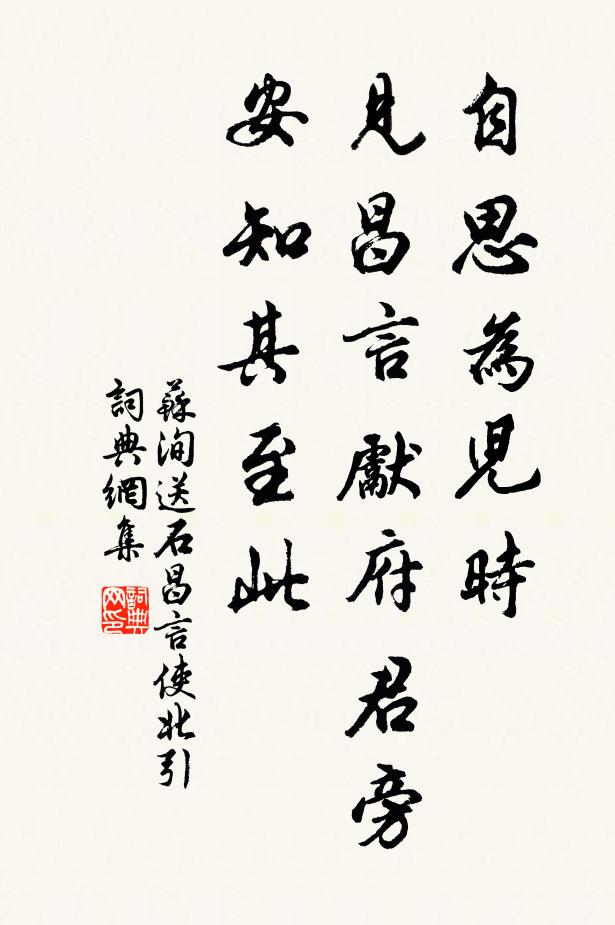 自思為児時
見昌言獻府君旁
安知其至此
蘇洵送石昌言使北引
詞典網集
詞典网印